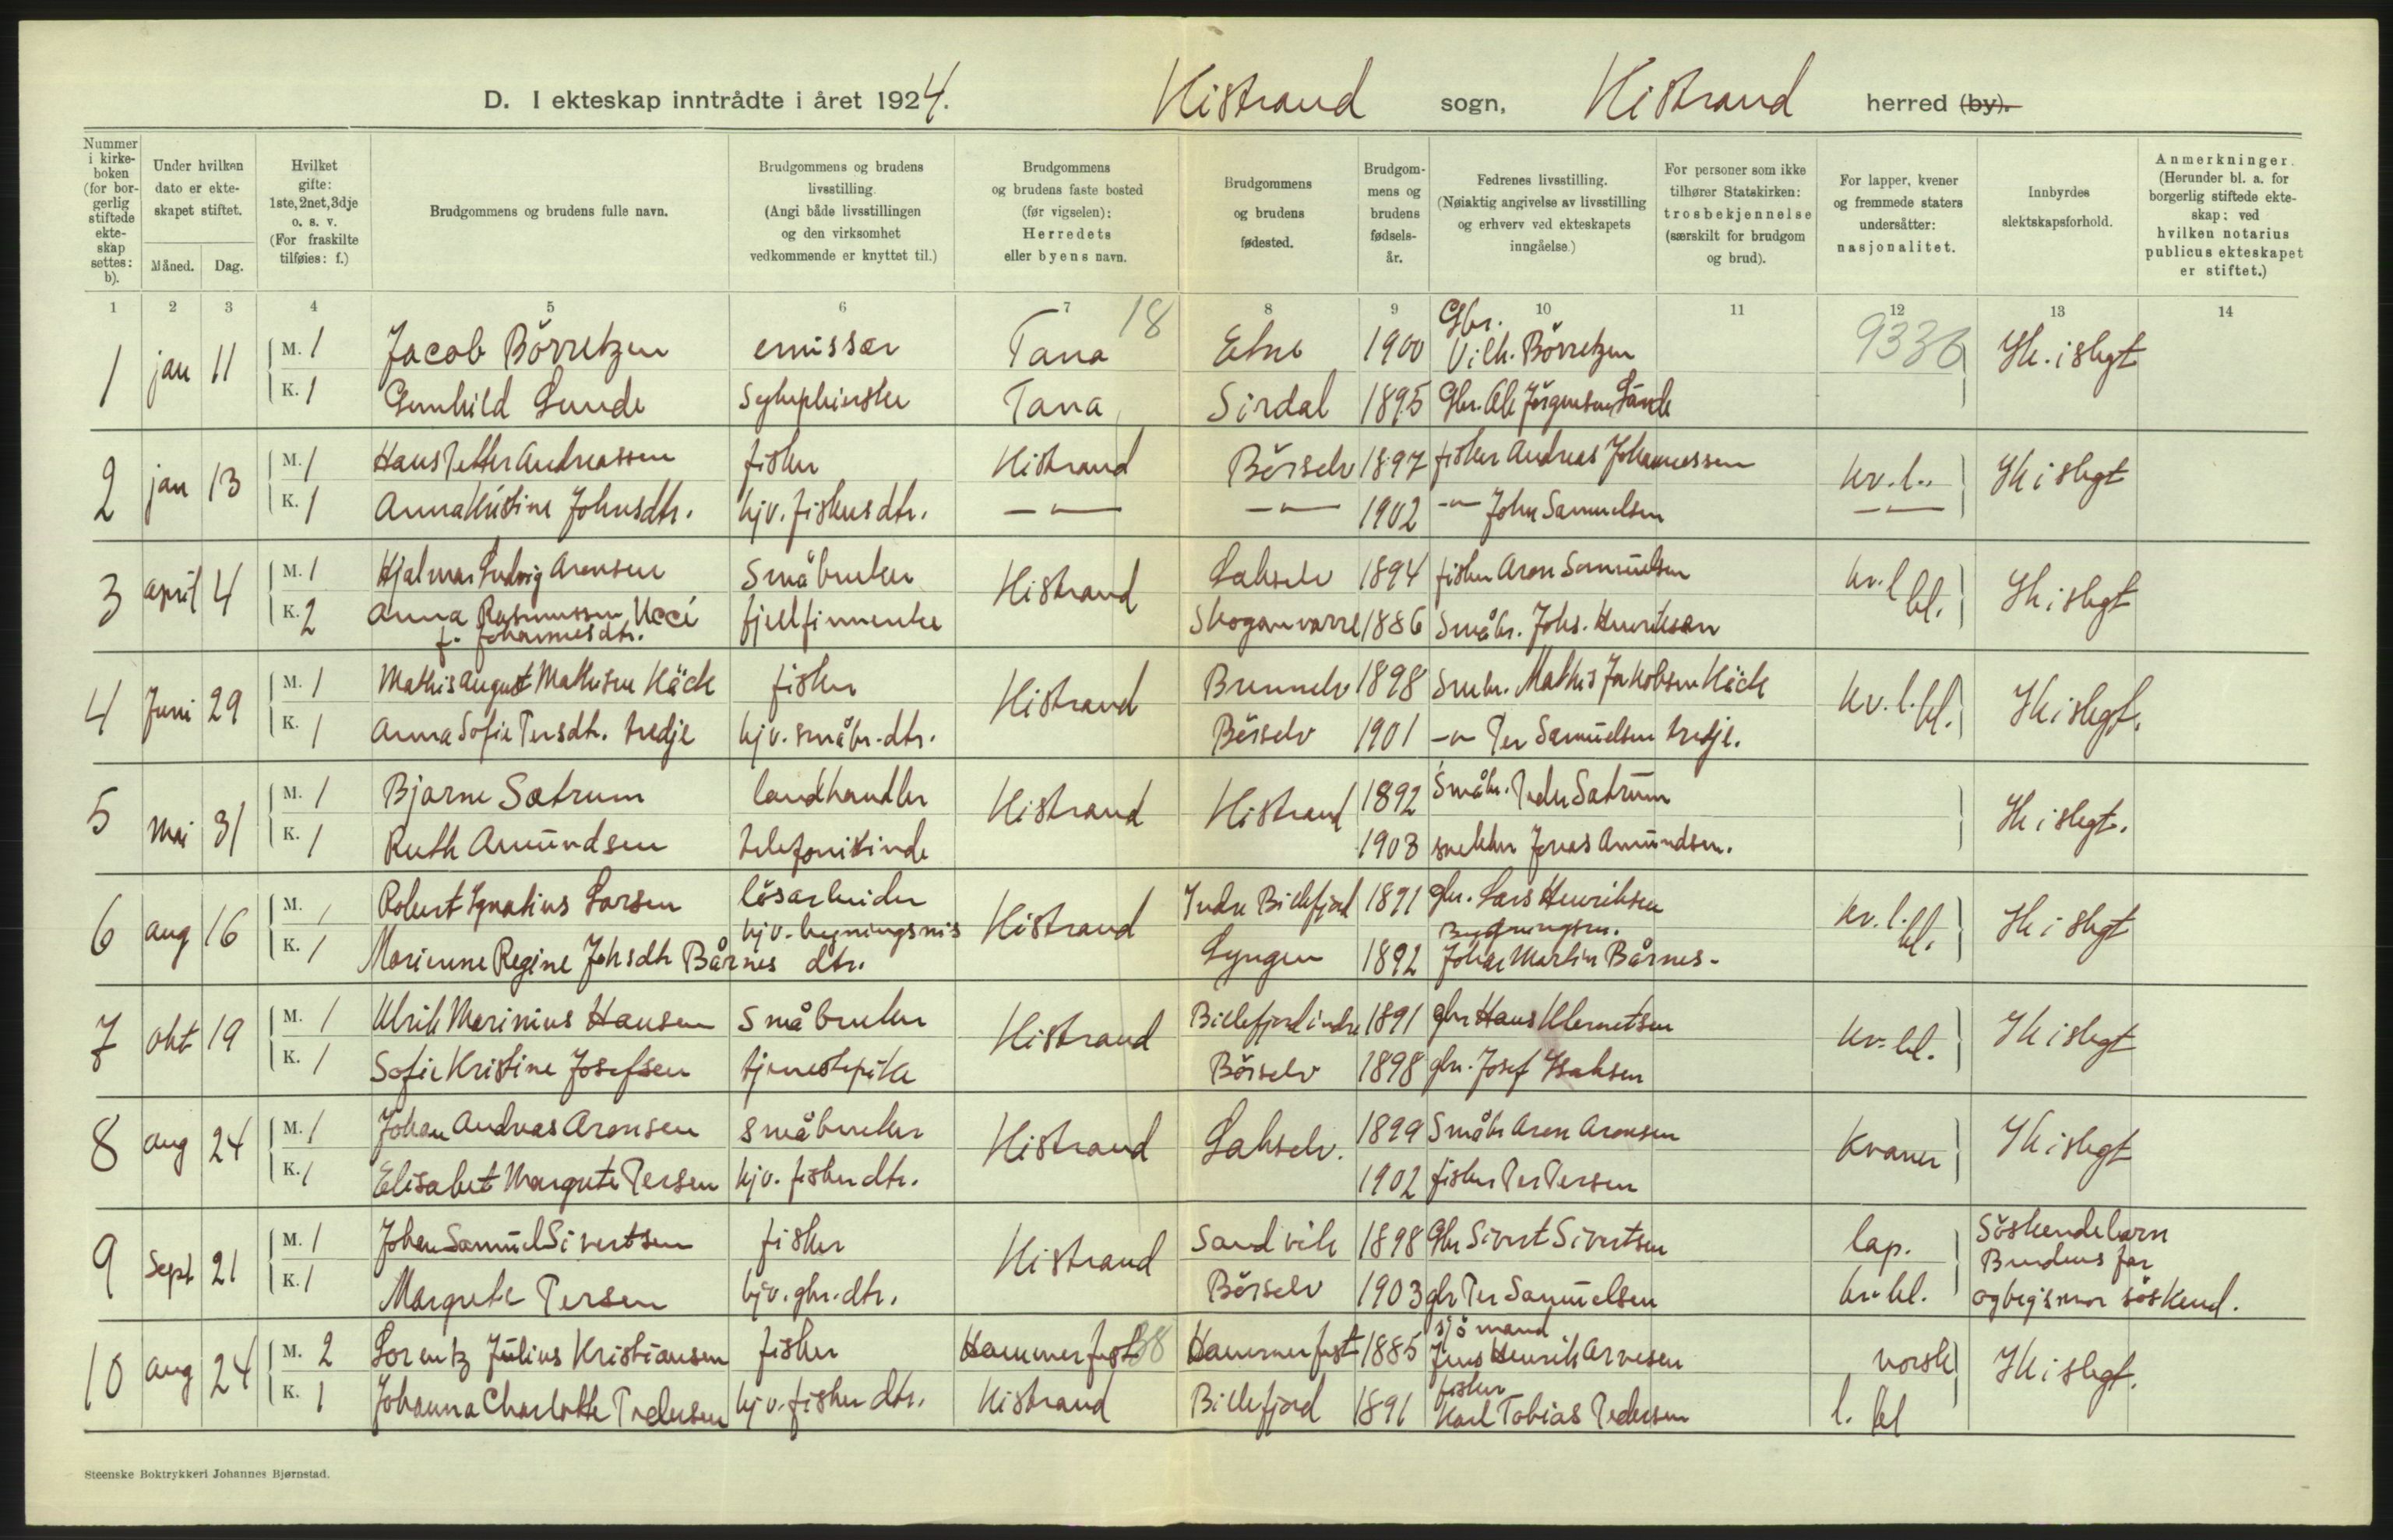 D. I ekteskap inntrådte i året 1924. Kistrand sogn, Kistrand herred (by).
Nummer i kirkeboken (for borgerlig stiftede ekteskap settes: b).
Under hvilken dato er ekteskapet stiftet.
Måned. Dag.
Hvilket gifte: 1ste, 2net, 3dje o. s. v. (For fraskilte tilføies: f.)
Brudgommens og brudens fulle navn.
Brudgommens og brudens livsstilling. (Angi både livsstillingen og den virksomhet vedkommende er knyttet til.)
Brudgommens og brudens faste bosted (før vigselen): Herredets eller byens navn.
Brudgommens og brudens fødested.
Brudgommens og brudens fødselsår.
Fedrenes livsstilling. (Nøiaktig angivelse av livsstilling og erhverv ved ekteskapets inngåelse.)
For personer som ikke tilhører Statskirken: trosbekjennelse (særskilt for brudgom og brud).
For lapper, kvener og fremmede staters undersåtter: nasjonalitet.
Innbyrdes slektskapsforhold.
Anmerkninger. (Herunder bl. a. for borgerlig stiftede ekteskap: ved hvilken notarius publicus ekteskapet er stiftet.)
1 2 3 4 5 6 7 8 9 10 11 12 13 14
18
1 jan 11 M. 1 Jacob Börretzen emissær Tana Etne 1900 Gbr. Vilh. Börretzen 9336 Ik. i slegt
K. 1 Gunhild Lunde Tana Sirdal 1895 Gbr. Ole Jörgensen Lunde
2 jan 13 M. 1 Hans Petter Andreassen fisker Kistrand Börselv 1897 fisker Andreas Johannessen kv. l. Ik i slegt
K. 1 Anna Kristine Johnsdtr. hjv. fiskersdtr. —"— —"— 1902 —"— John Samuelsen —"—
3 april 4 M. 1 Hjalmar Ludvig Aronsen Småbruker Kistrand Lakselv 1894 fisker Aron Samuelsen kv. l bl. Ik i slegt
K. 2 Anna Rasmussen Ucci f. Johannesdtr. fjellfinnenke Skoganvarre 1886 Småbr. Johs. Henriksen
4 Juni 29 M. 1 Mathis August Mathisen Käck fisker Kistrand Brennelv 1898 Småbr. Mathis Jakobsen Käck kv. l. bl. Ik i slegt.
K. 1 Anna Sofie Persdtr. tredje hjv. småbr. dtr. Börselv 1901 —"— Per Samuelsen tredje.
5 mai 31 M. 1 Bjarne Sætrum landhandler Kistrand Kistrand 1892 Småbr. Peder Sætrum Ik i slegt.
K. 1 Ruth Amundsen telefonistinde 1903 snekker Jonas Amundsen.
6 aug 16 M. 1 Robert Ignatius Larsen lösarbeider Kistrand Indre Billefjord 1891 gbr. Lars Henriksen kv. l. bl. Ik i slegt
K. 1 Marienne Regine Johsdtr Bårnes hjv. bygningsm's dtr. Lyngen 1892 Bygningsm. Johan Martin Bårnes.
7 okt 19 M. 1 Ulrik Marinius Hansen Småbruker Kistrand Billefjord indre 1891 gbr Hans Klemetsen kv. bl. Ik i slegt
K. 1 Sofie Kristine Josefsen tjenestepike Börselv 1898 gbr. Josef Isaksen
8 aug 24 M. 1 Johan Andreas Aronsen småbruker Kistrand Lakselv. 1899 Småbr Aron Aronsen Kvæner Ik i slegt
K. 1 Elisabet Margrete Persen hjv. fisker dtr. 1902 fisker Per Persen
9 Sept 21 M. 1 Johan Samuel Sivertsen fisker Kistrand Sandvik 1898 Gbr Sivert Sivertsen lap. Söskendebarn
K. 1 Margrete Persen hjv. gbr. dtr. Börselv 1903 gbr Per Samuelsen kv. bl. Brudens far og brg's mor söskend.
10 aug 24 M. 2 Lorentz Julius Kristiansen fisker Hammerfest 38 Hammerfest 1885 sjömand Jens Henrik Arnesen norsk Ik i slegt.
K. 1 Johanna Charlotte Pedersen hjv. fisker dtr. Kistrand Billefjord 1891 fisker Karl Tobias Pedersen l. bl
Steenske Boktrykkeri Johannes Bjørnstad.